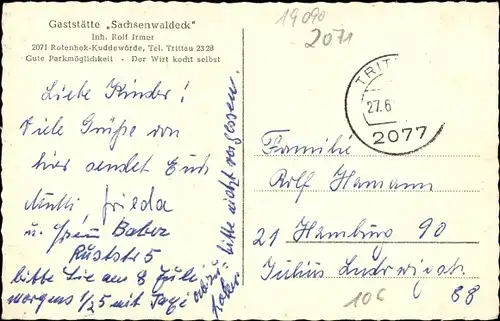 Gaststätte „Sachsenwaldeck"
Inh. Rolf Irmer
2071 Rotenbek-Kuddewörde, Tel. Trittau 23 28
Gute Parkmöglichkeit - Der Wirt kocht selbst
19090
2071
TRIT
27.6
2077
Liebe Kinder!
Viele Grüße von
hier sendet Euch
Mutti, Frieda
u. Frau Baber
Ruststr 5
bitte Sie am 8 Juli
morgens 1/25 mit Taxi
abzu-
holen
bitte nicht vergessen.
Familie
Rolf Hamann
21 Hamburg 90
Julius Ludowigstr.
106
88